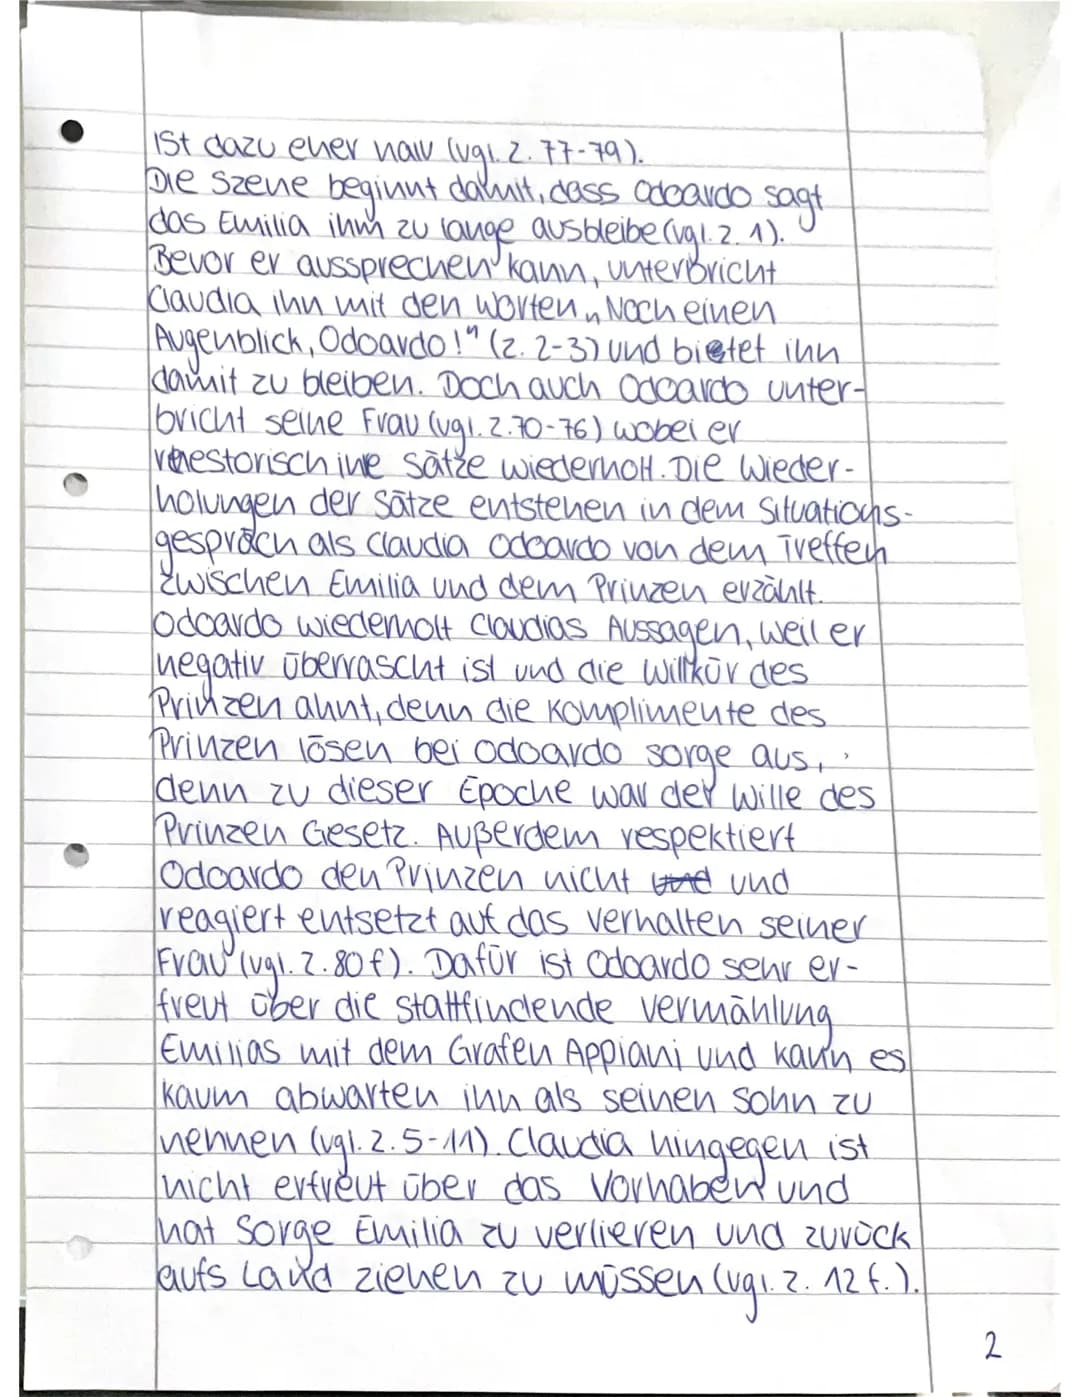 ist dazu eher naiv (vgl. Z. 77-79).
Die Szene beginnt damit, dass Odoardo sagt
das Emilia ihm zu lange ausbleibe (vgl. Z. 1).
Bevor er aussprechen kann, unterbricht
Claudia ihn mit den Worten „Noch einen
Augenblick, Odoardo!" (Z. 2-3) und bietet ihn
damit zu bleiben. Doch auch Odoardo unter-
bricht seine Frau (vgl. Z. 70-76) wobei er
rhestorisch ihre Sätze wiederholt. Die Wieder-
holungen der Sätze entstehen in dem Situations-
gespräch als Claudia Odoardo von dem Treffen
zwischen Emilia und dem Prinzen erzählt.
Odoardo wiederholt Claudias Aussagen, weil er
negativ überrascht ist und die Willkür des
Prinzen ahnt, denn die Komplimente des
Prinzen lösen bei Odoardo sorge aus,
denn zu dieser Epoche war der Wille des
Prinzen Gesetz. Außerdem respektiert
Odoardo den Prinzen nicht und und
reagiert entsetzt auf das verhalten seiner
Frau (vgl. Z. 80 f). Dafür ist Odoardo sehr er-
freut über die stattfindende Vermählung
Emilias mit dem Grafen Appiani und kann es
kaum abwarten ihn als seinen Sohn zu
nennen (vgl. Z. 5-11). Claudia hingegen ist
nicht erfreut über das Vorhaben und
hat Sorge Emilia zu verlieren und zurück
aufs Land ziehen zu müssen (vgl. Z. 12 f.).
2